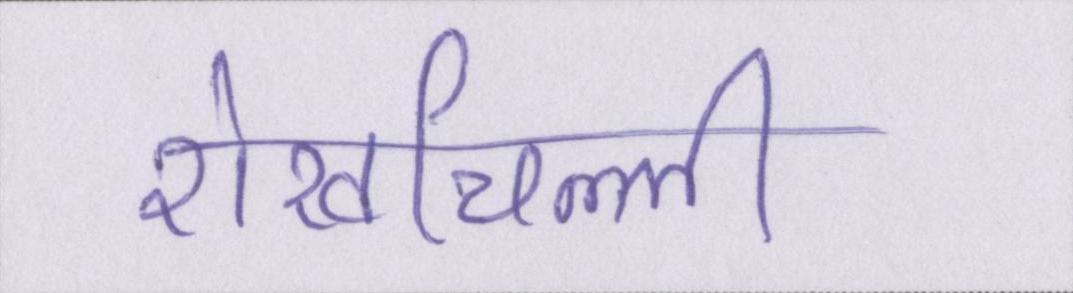 शेखचिल्ली